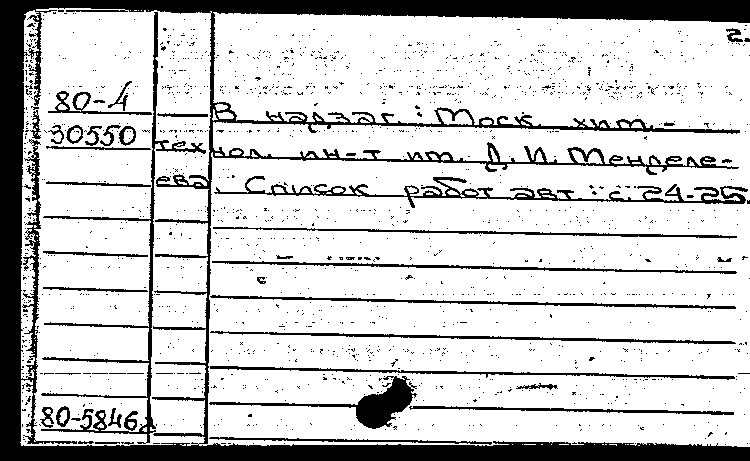 2.
80-4
В надзаг.: Моск. хим.-
30550 технол. ин-т им. Д. И. Менделе-
ева. Список работ авт.: с. 24-25.
80-5846а